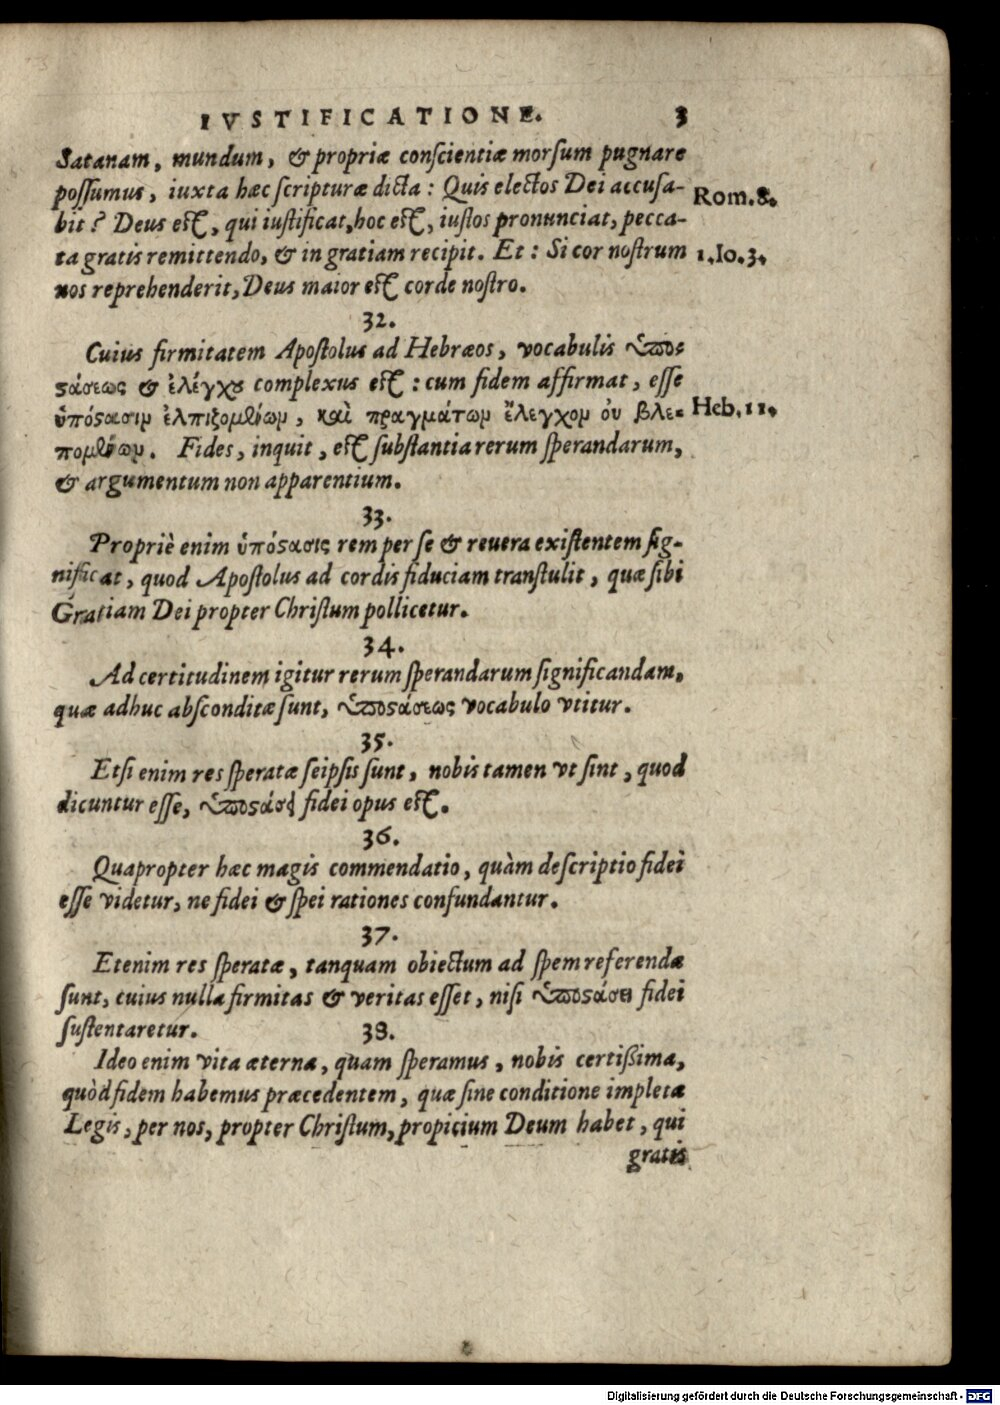 IVSTIFICATIONE. 3
Satanam, mundum, & propriæ conscientiæ morsum pugnare
possumus, iuxta hæc scripturæ dicta: Quis electos Dei accusa- Rom.8.
bit? Deus est, qui iustificat, hoc est, iustos pronunciat, pecca-
ta gratis remittendo, & in gratiam recipit. Et: Si cor nostrum 1.Io.3.
nos reprehenderit, Deus maior est corde nostro.
32.
Cuius firmitatem Apostolus ad Hebræos, vocabulis ὑπος
ςάσεως & ἐλέγχου complexus est: cum fidem affirmat, esse
ὑπόςασιμ ἐλπιζομένωμ, καὶ πραγμάτωμ ἔλεγχομ οὐ βλε- Heb.11.
πομένωμ. Fides, inquit, est substantia rerum sperandarum,
& argumentum non apparentium.
33.
Propriè enim ὑπόςασις rem per se & reuera existentem sig-
nificat, quod Apostolus ad cordis fiduciam transtulit, quæ sibi
Gratiam Dei propter Christum pollicetur.
34.
Ad certitudinem igitur rerum sperandarum significandam,
quæ adhuc absconditæ sunt, ὑποςάσεως vocabulo vtitur.
35.
Etsi enim res speratæ seipsis sunt, nobis tamen vt sint, quod
dicuntur esse, ὑποςάσει fidei opus est.
36.
Quapropter hæc magis commendatio, quàm descriptio fidei
esse videtur, ne fidei & spei rationes confundantur.
37.
Etenim res speratæ, tanquam obiectum ad spem referendæ
sunt, cuius nulla firmitas & veritas esset, nisi ὑποςάσει fidei
sustentaretur. 38.
Ideo enim vita æterna, quam speramus, nobis certißima,
quòd fidem habemus præcedentem, quæ sine conditione impletæ
Legis, per nos, propter Christum, propicium Deum habet, qui
gratis
Digitalisierung gefördert durch die Deutsche Forschungsgemeinschaft - DFG